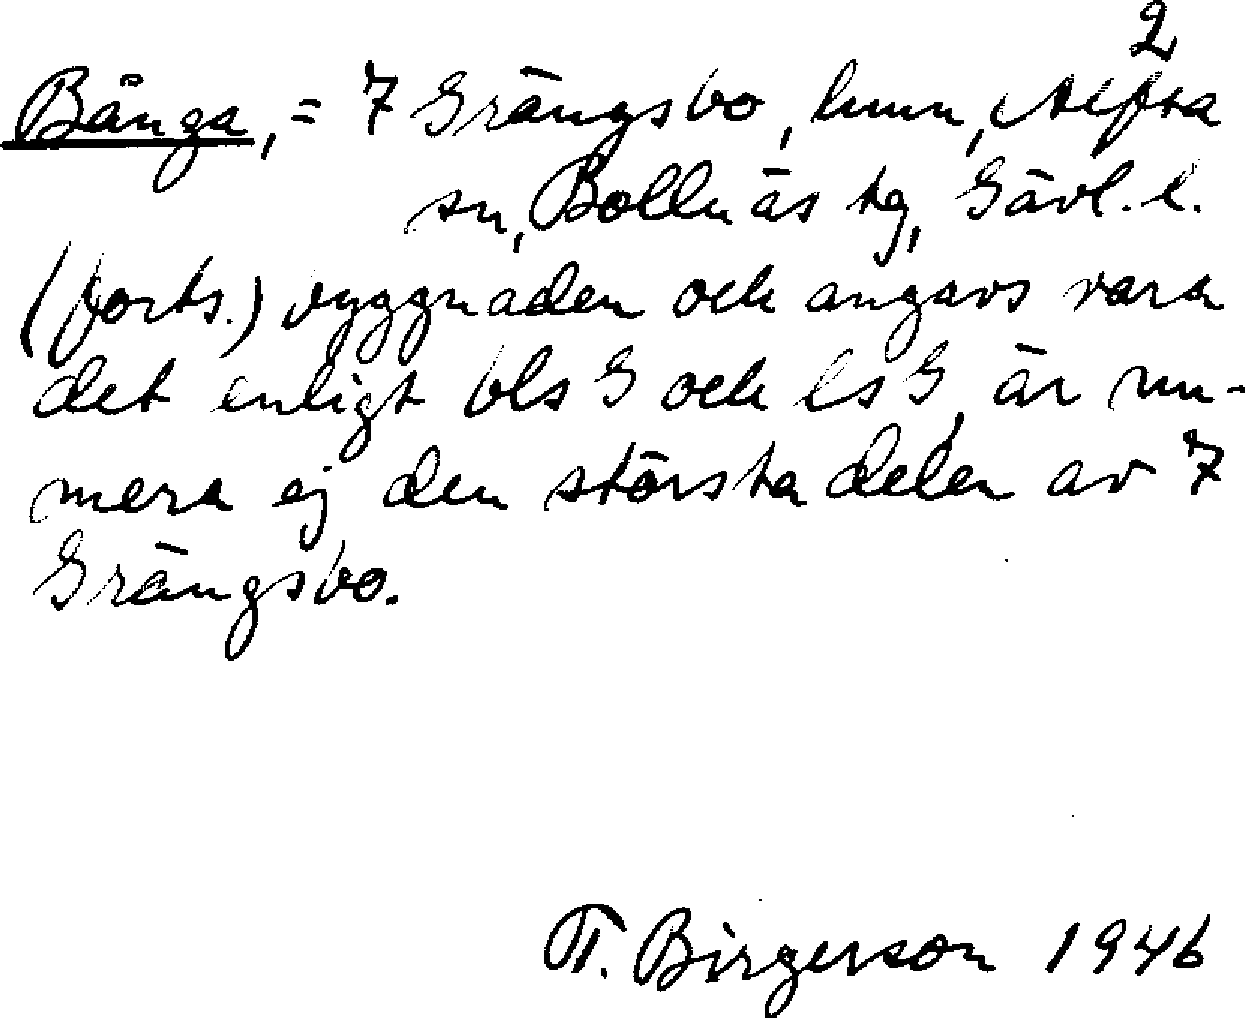 2
Bånga, = 7 Grängsbo, hmn, Alfta
sn, Bollnäs tg, Gävl. l.
(forts.) byggnaden och angavs vara
det enligt bls G och ls G, är nu-
mera ej den största delen av 7
Grängsbo.
T. Birgerson 1946